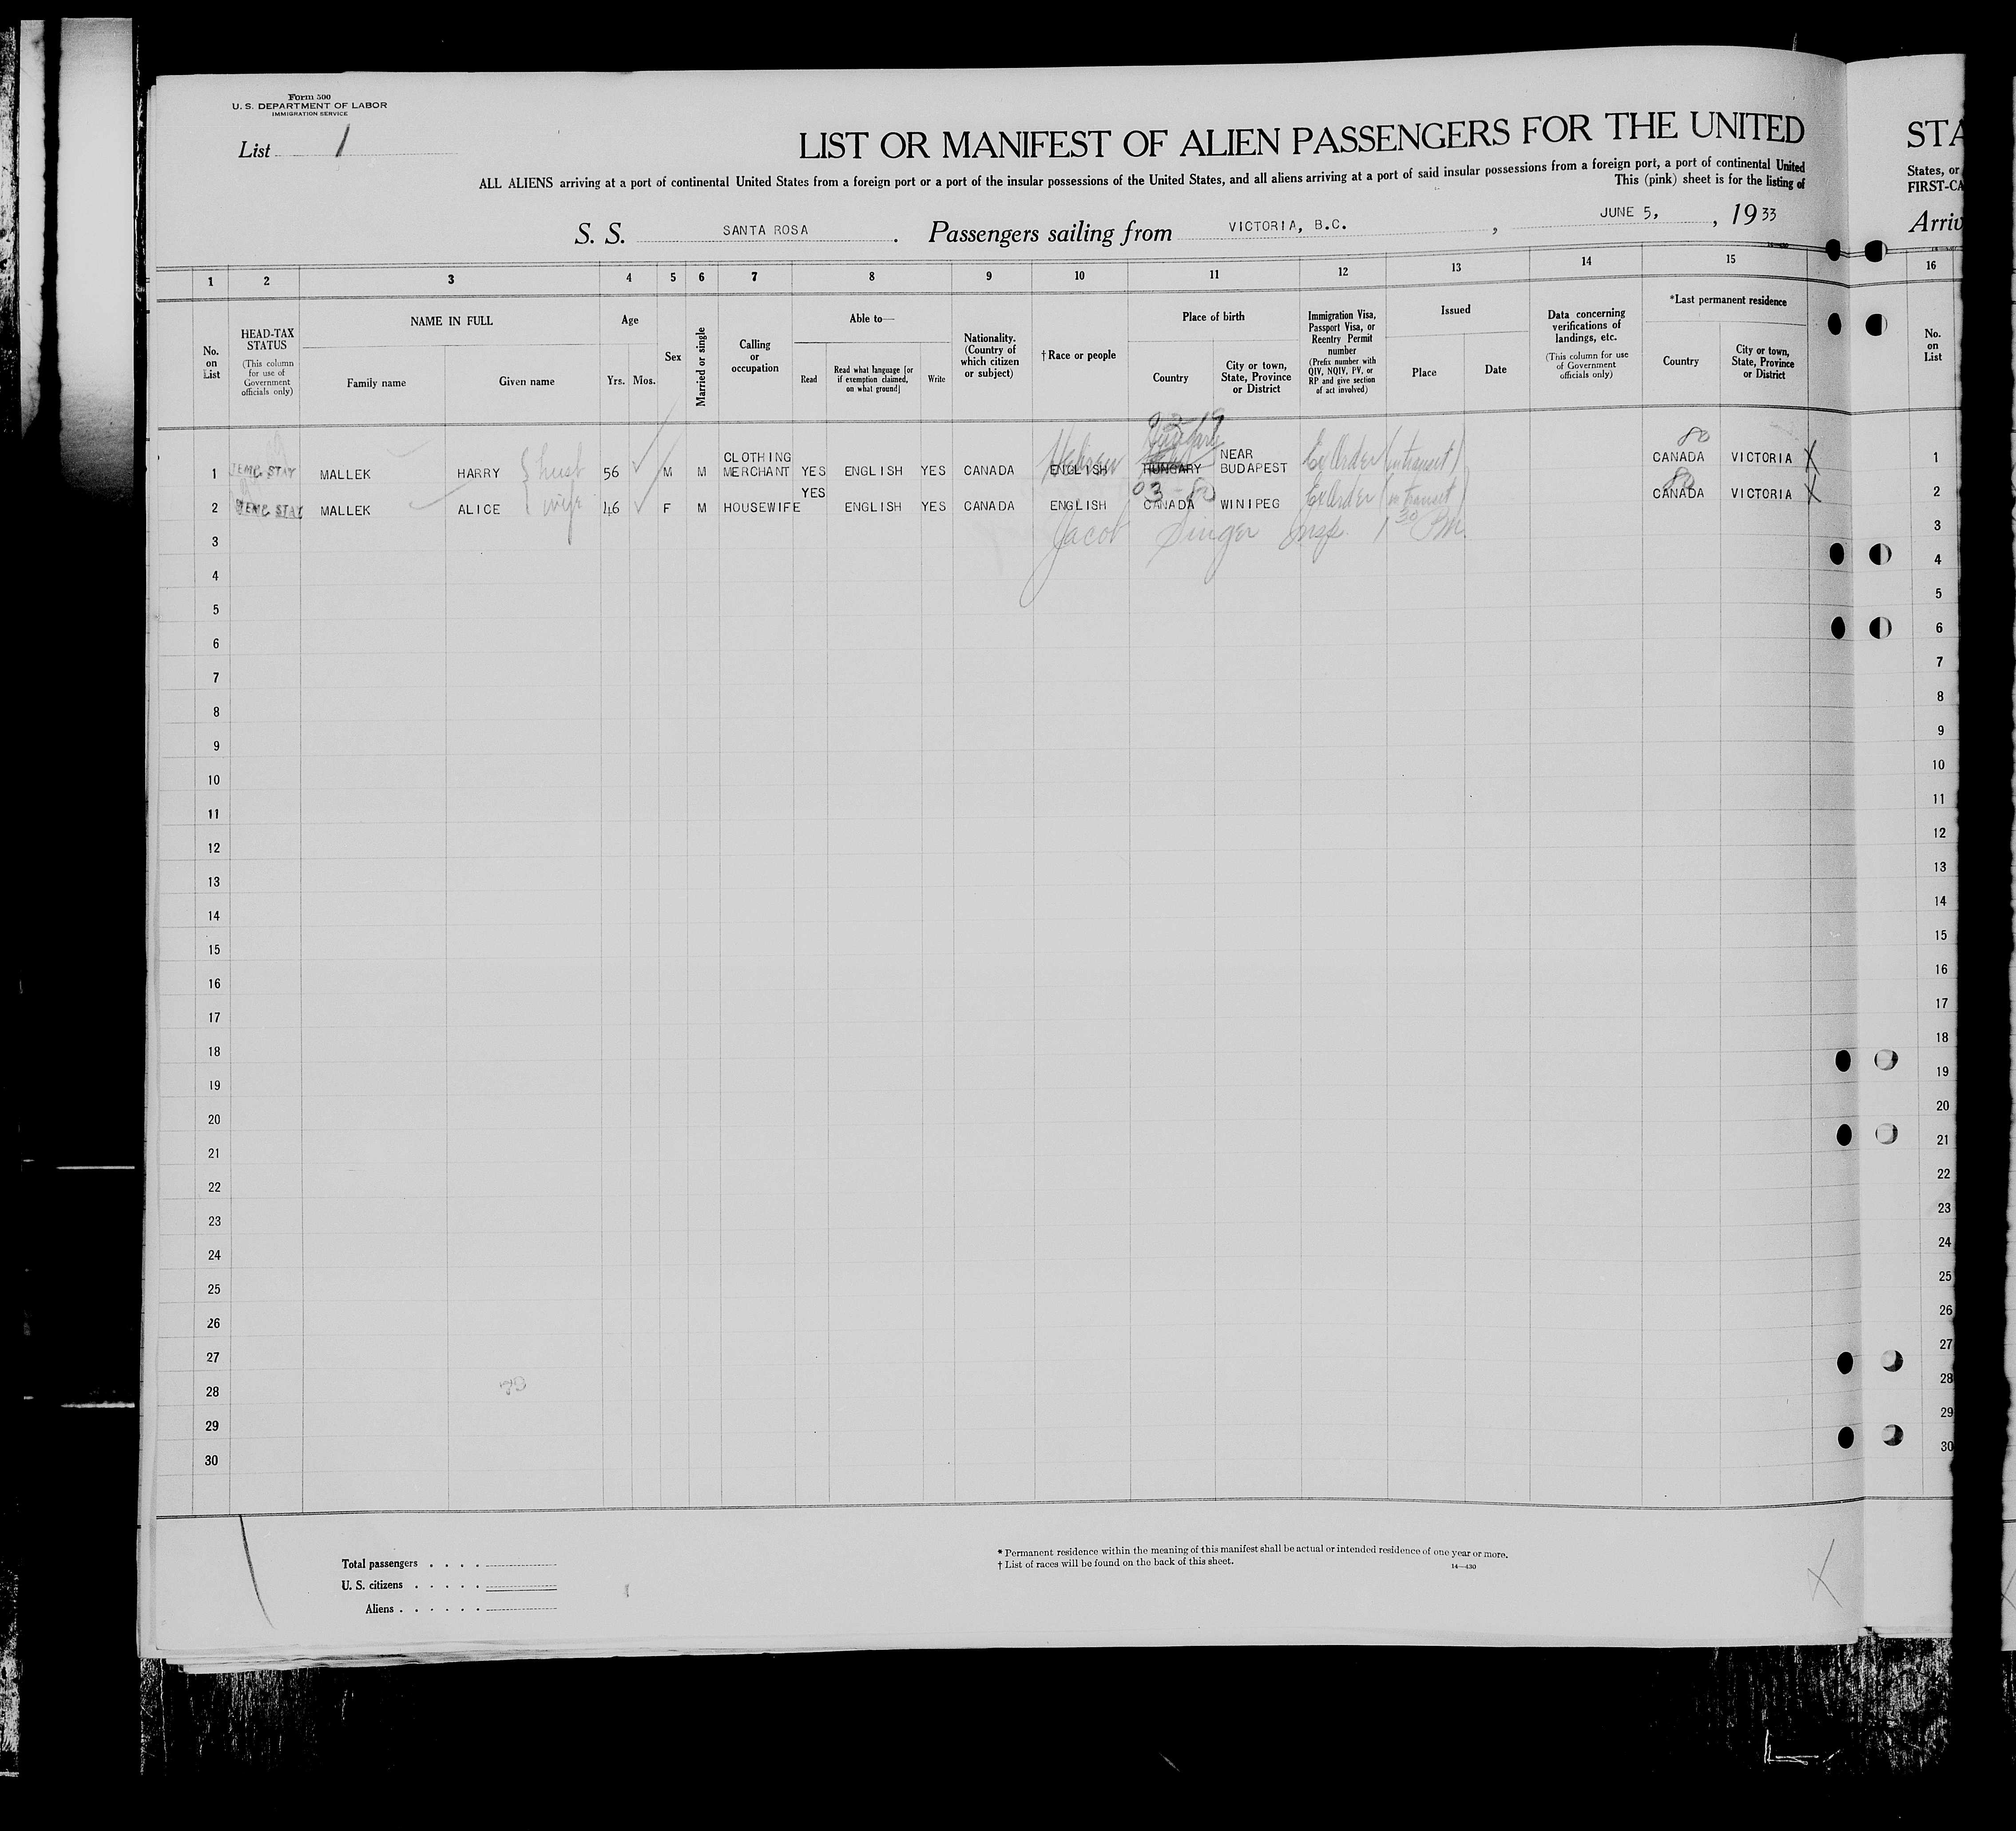 Form 500
U. S. DEPARTMENT OF LABOR
IMMIGRATION SERVICE
List 1
LIST OR MANIFEST OF ALIEN PASSENGERS FOR THE UNITED
STA
ALL ALIENS arriving at a port of continental United States from a foreign port or a port of the insular possessions of the United States, and all aliens arriving at a port of said insular possessions from a foreign port, a port of continental United
States, or
This (pink) sheet is for the listing of
FIRST-CA
S. S. SANTA ROSA. Passengers sailing from VICTORIA, B.C., JUNE 5, , 1933
Arriv
1 2 3 4 5 6 7 8 9 10 11 12 13 14 15
16
No. on List
HEAD-TAX STATUS
(This column for use of Government officials only)
NAME IN FULL
Family name Given name
Age
Yrs. Mos.
Sex
Married or single
Calling or occupation
Able to—
Read
Read what language [or if exemption claimed, on what ground]
Write
Nationality. (Country of which citizen or subject)
†Race or people
Place of birth
Country
City or town, State, Province or District
Immigration Visa, Passport Visa, or Reentry Permit number
(Prefix number with QIV, NQIV, PV, or RP and give section of act involved)
Issued
Place Date
Data concerning verifications of landings, etc.
(This column for use of Government officials only)
*Last permanent residence
Country
City or town, State, Province or District
No. on List
1 TEMP. STAY MALLEK HARRY husb 56 M M CLOTHING MERCHANT YES ENGLISH YES CANADA Hebrew ENGLISH Hungary HUNGARY NEAR BUDAPEST Ex Order (in transit) 80 CANADA VICTORIA X 1
2 TEMP. STAY MALLEK ALICE wife 46 F M HOUSEWIFE YES ENGLISH YES CANADA ENGLISH 03-80 CANADA WINIPEG Ex Order (in transit) 80 CANADA VICTORIA X 2
3 Jacob Singer Insp. 1 30 PM. 3
4 4
5 5
6 6
7 7
8 8
9 9
10 10
11 11
12 12
13 13
14 14
15 15
16 16
17 17
18 18
19 19
20 20
21 21
22 22
23 23
24 24
25 25
26 26
27 27
28 28
29 29
30 30
Total passengers . . . .
U. S. citizens . . . . .
Aliens . . . . . .
* Permanent residence within the meaning of this manifest shall be actual or intended residence of one year or more.
† List of races will be found on the back of this sheet.
14—430